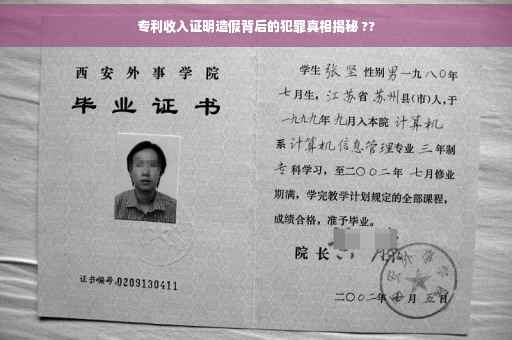 专利收入证明造假背后的犯罪真相揭秘 ??
西安外事学院
毕业证书
证书编号:0209130411
学生 张坚 性别 男 一九八〇年
七月生，江苏省 苏州县(市)人，于
一九九九年 九月入本院 计算机
系 计算机信息管理专业 三 年制
专科学习，至二〇〇二年 七月修业
期满，学完教学计划规定的全部课程，
成绩合格，准予毕业。
院长
二〇〇二年 七月 五日